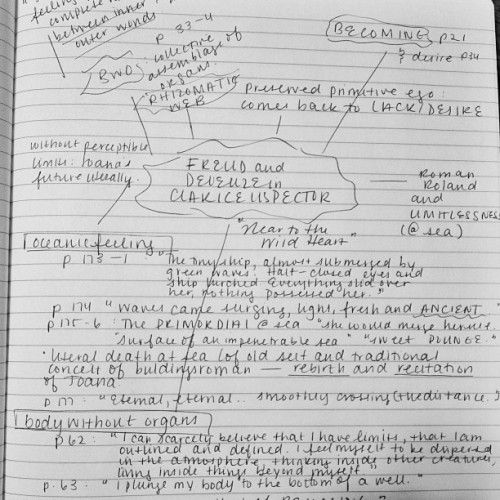 feeling
complete
between inner
outer worlds
p 33-4
BWO: collective
assemblage of
organs.
RHIZOMATIC
WEB
BECOMING p21
& desire p34
preserved primitive ego:
comes back to LACK/DESIRE
without perceptible
limits: Joana's
future usually.
FREUD and
DELEUZE in
CLARICE LISPECTOR
"Near to the
Wild Heart"
Roman
Roland
and
LIMITLESSNESS
(@ sea)
oceanic feeling
p 173-1: The tiny ship, almost submerged by
green waves. Half-closed eyes and
ship lurched. Everything slid over
her, nothing possessed her."
p 174 "waves came surging, light, fresh and ANCIENT"
p 175-6: The PRIMORDIAL @ sea "she would merge herself
"surface of an impenetrable sea" "sweet PLUNGE."
literal death at sea (of old self and traditional
conceit of buldingsroman — rebirth and recitation
of Joana
p 177: "Eternal, eternal... smoothly crossing the distance.
body without organs
p. 62: "I can scarcely believe that I have limits, that I am
outlined and defined. I feel myself to be dispersed
in the atmosphere, thinking inside other creatures,
living inside things beyond myself."
p. 63: "I plunge my body to the bottom of a well."